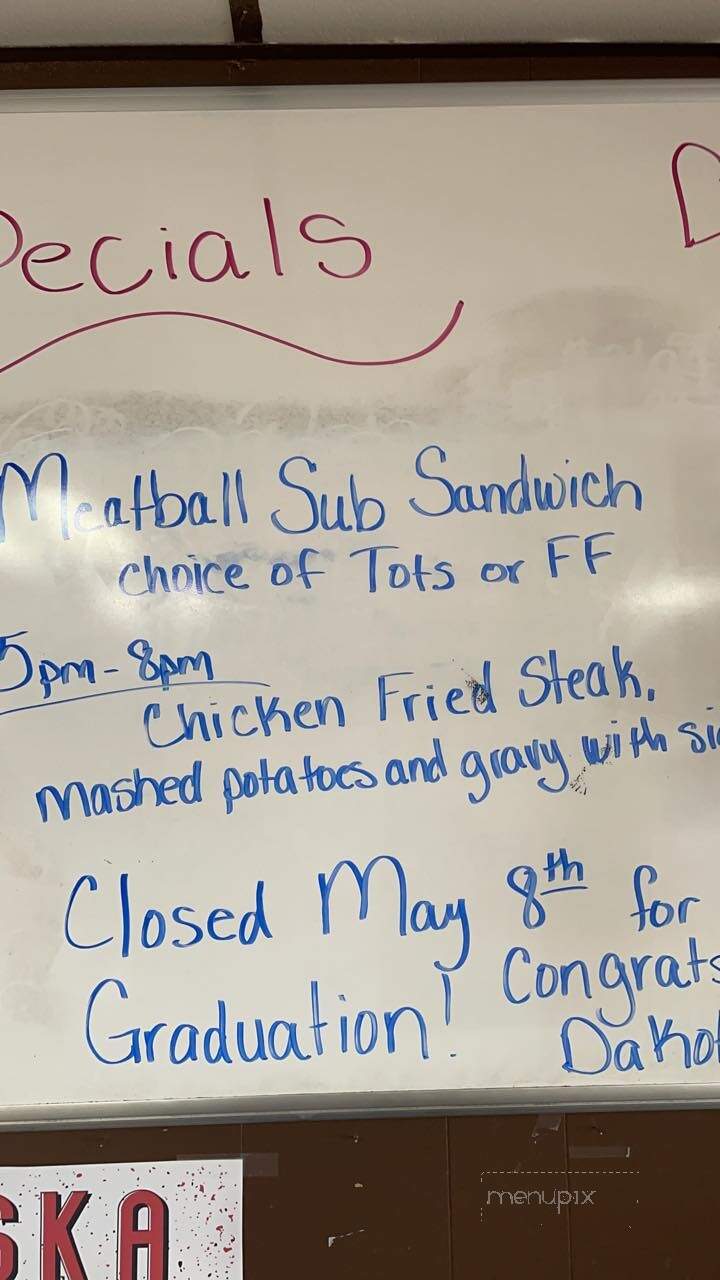 pecials
D
Meatball Sub Sandwich
choice of Tots or FF
5pm - 8pm
Chicken Fried Steak,
mashed potatoes and gravy with si
Closed May 8th for
Graduation! Congrats
Dako
SKA
menupix